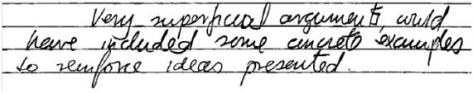 Very superficial arguments could
have included some concrete examples
to reinforce ideas presented.